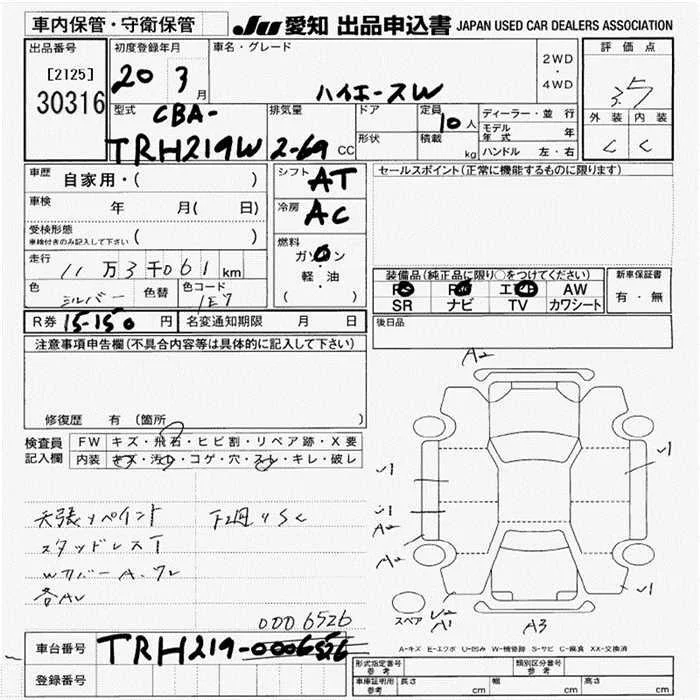 車内保管・守衛保管
JU 愛知 出品申込書 JAPAN USED CAR DEALERS ASSOCIATION
出品番号
[2125]
30316
初度登録年月
20 3月
車名・グレード
ハイエースW
2WD
・
4WD
評価点
3.5
外装 内装
C C
型式
CBA-
TRH219W
排気量
2-69 CC
ドア
形状
定員
10人
積載
kg
ディーラー・並行
モデル年式 年
ハンドル 左・右
車歴 自家用・( )
車検 年 月( 日)
受検形態
車検付きのみ記入して下さい ( )
走行
11万3千061km
色
シルバー
色替
色コード
1E7
シフト
AT
冷房
AC
燃料
ガソリン
・
軽・油
( )
セールスポイント(正常に機能するものに限ります)
装備品(純正品に限り○をつけてください)
PS PW エアB AW
SR ナビ TV カワシート
新車保証書
有・無
R券 15-150円
名変通知期限 月 日
後日品
注意事項申告欄(不具合内容等は具体的に記入して下さい)
修復歴 有 (箇所 )
検査員
記入欄
FW キズ・飛石・ヒビ割・リペア跡・X要
内装 キズ・汚れ・コゲ・穴・スレ・キレ・破レ
スタッドレスT
下廻りSC
各AU
0006526
車台番号 TRH219-0006526
登録番号
A2
A2
A2
A1
A3
スペア
A-キズ E-エクボ U-凹み W-補修跡 S-サビ C-腐食 XX-交換済
形式指定番号
参考
類別区分番号
参考
車庫証明用
参考
長さ cm 幅 cm 高さ cm